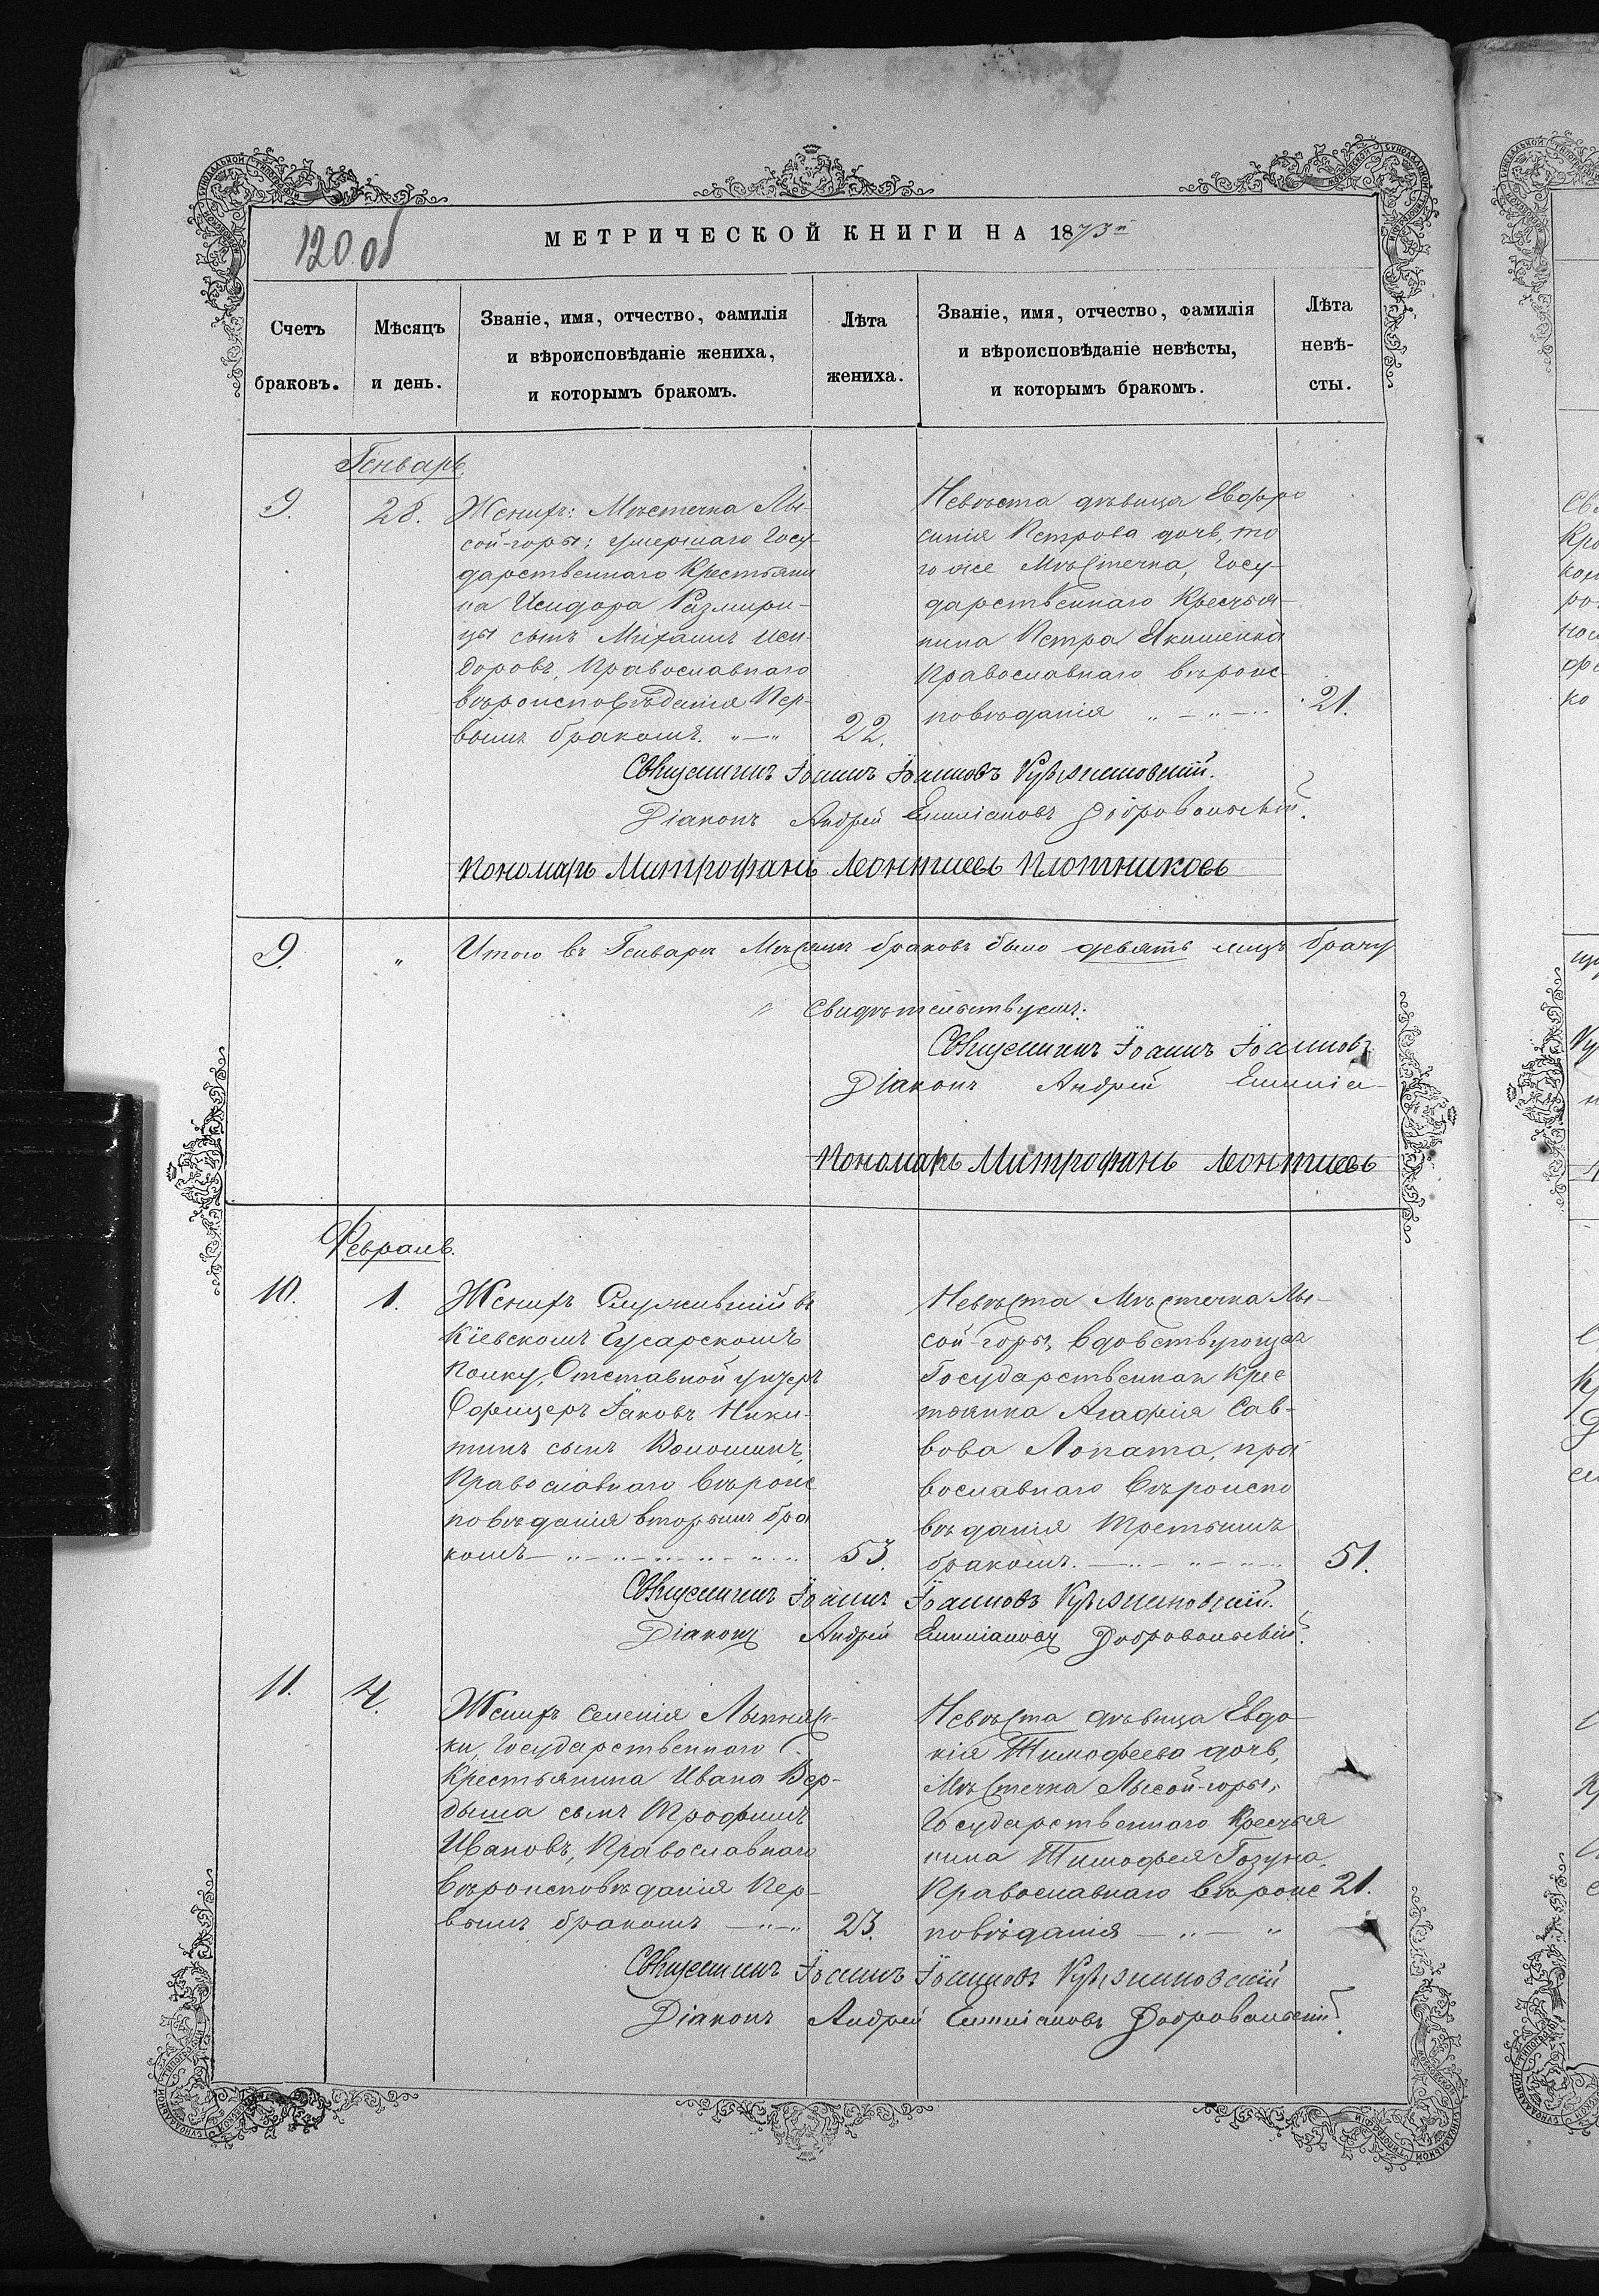 120 об
МЕТРИЧЕСКОЙ КНИГИ НА 1873й
Счетъ
браковъ.
Мѣсяцъ
и день.
Званіе, имя, отчество, фамилія
и вѣроисповѣданіе жениха,
и которымъ бракомъ.
Лѣта
жениха.
Званіе, имя, отчество, фамилія
и вѣроисповѣданіе невѣсты,
и которымъ бракомъ.
Лѣта
невѣ-
сты.
Генварь.
9.
28.
Женихъ: Мѣстечка Лы-
сой-горы; умершаго Госу-
дарственнаго Крестьяни
на Исидора Размири-
цы сынъ Михаилъ Иси-
доровъ, Православнаго
вѣроисповѣданія Пер-
вымъ бракомъ.
22.
Невѣста дѣвица Евфро
синія Петрова дочь, то
го же Мѣстечка, Госу-
дарственнаго Крестья-
нина Петра Якименка
Православнаго вѣроис-
повѣданія
21.
Священникъ Іоаннъ Іоанновъ
Діаконъ Андрей Емиліановъ Добровольскій.
Пономарь Митрофанъ Леонтиевъ Плотниковъ
9.
"
Итого въ Генварѣ Мѣсяцѣ браковъ было девять лицъ брачу
Свидѣтельствуемъ:
Священникъ Іоаннъ Іоанновъ
Діаконъ Андрей Емиліа-
Пономарь Митрофанъ Леонтиевъ
Февраль.
10.
1.
Женихъ Служившій въ
Кіевскомъ Гусарскомъ
Полку, Отставной унтеръ
Офицеръ Іаковъ Ники-
тинъ сынъ Волошинъ,
Православнаго вѣроис
повѣданія вторымъ бра
комъ
53.
Невѣста Мѣстечка Лы-
сой-горы, вдовствующая
Государственная Крес
тьянка Агафія Сав-
вова Лопата, пра
вославнаго вѣроиспо
вѣданія Третьимъ
бракомъ.
51.
Священникъ Іоаннъ Іоанновъ
Діаконъ Андрей Емиліановъ Добровольскій.
11.
4.
Женихъ селенія Лыпняж-
ки, Государственнаго
Крестьянина Ивана Вер-
быша сынъ Трофимъ
Ивановъ, Православнаго
вѣроисповѣданія Пер-
вымъ бракомъ
23.
Невѣста дѣвица Евдо-
кія Тимофеева дочь,
Мѣстечка Лысой-горы,
Государственнаго Крестья
нина Тимофея Гозуна,
Православнаго вѣроис
повѣданія
21.
Священникъ Іоаннъ Іоанновъ
Діаконъ Андрей Емиліановъ Добровольскій.